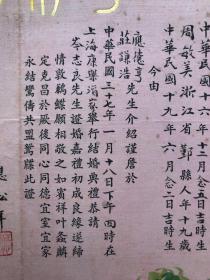 中華民國十六年十二月念五日吉時生
周敏美浙江省鄞縣人年十九歲
中華民國十九年六月念二日吉時生
今由
應德亨
莊謙浩先生介紹謹詹於
中華民國三十七年一月十八日下午四時在
上海康樂酒家舉行結婚典禮恭請
岑志良先生證婚嘉禮初成良緣遂締
情敦鶼鰈願相敬之如賓祥叶螽麟
定克昌於厥後同心同德宜室宜家
永結鸞儔共盟鴛牒此證